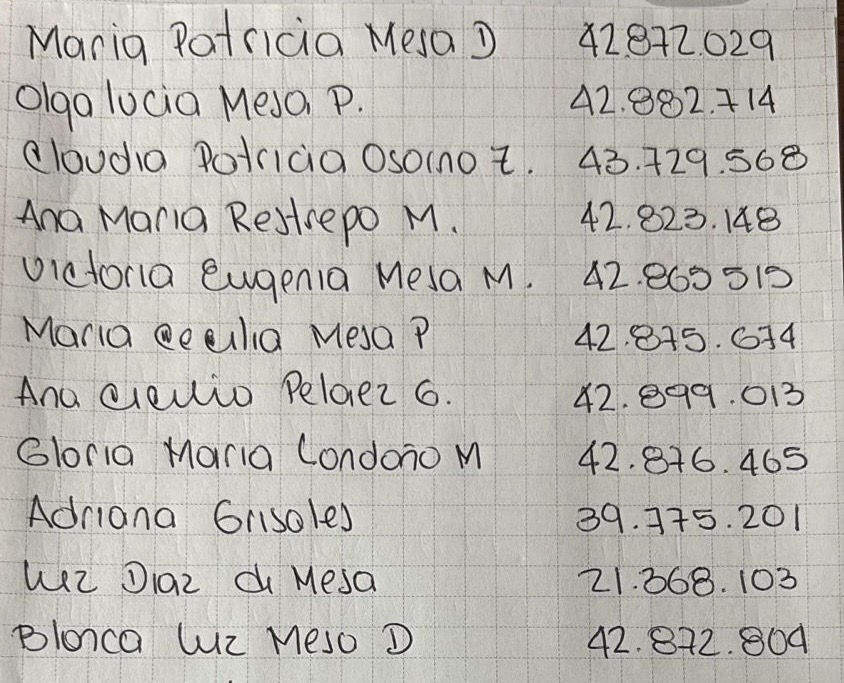 Maria Patricia Mesa D 42.872.029
Olga lucia Mesa P. 42.882.714
Claudia Patricia Osorno Z. 43.729.568
Ana Maria Restrepo M. 42.823.148
Victoria Eugenia Mesa M. 42.865 515
Maria Cecilia Mesa P 42.875.674
Ana Pelaez G. 42.899.013
Gloria Maria Londoño M 42.876.465
Adriana Grisales 39.775.201
Luz Diaz de Mesa 21.368.103
Blanca Luz Mesa D 42.872.804